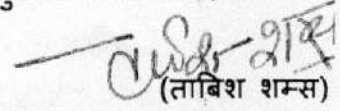 ताबिश शम्स
(ताबिश शम्स)